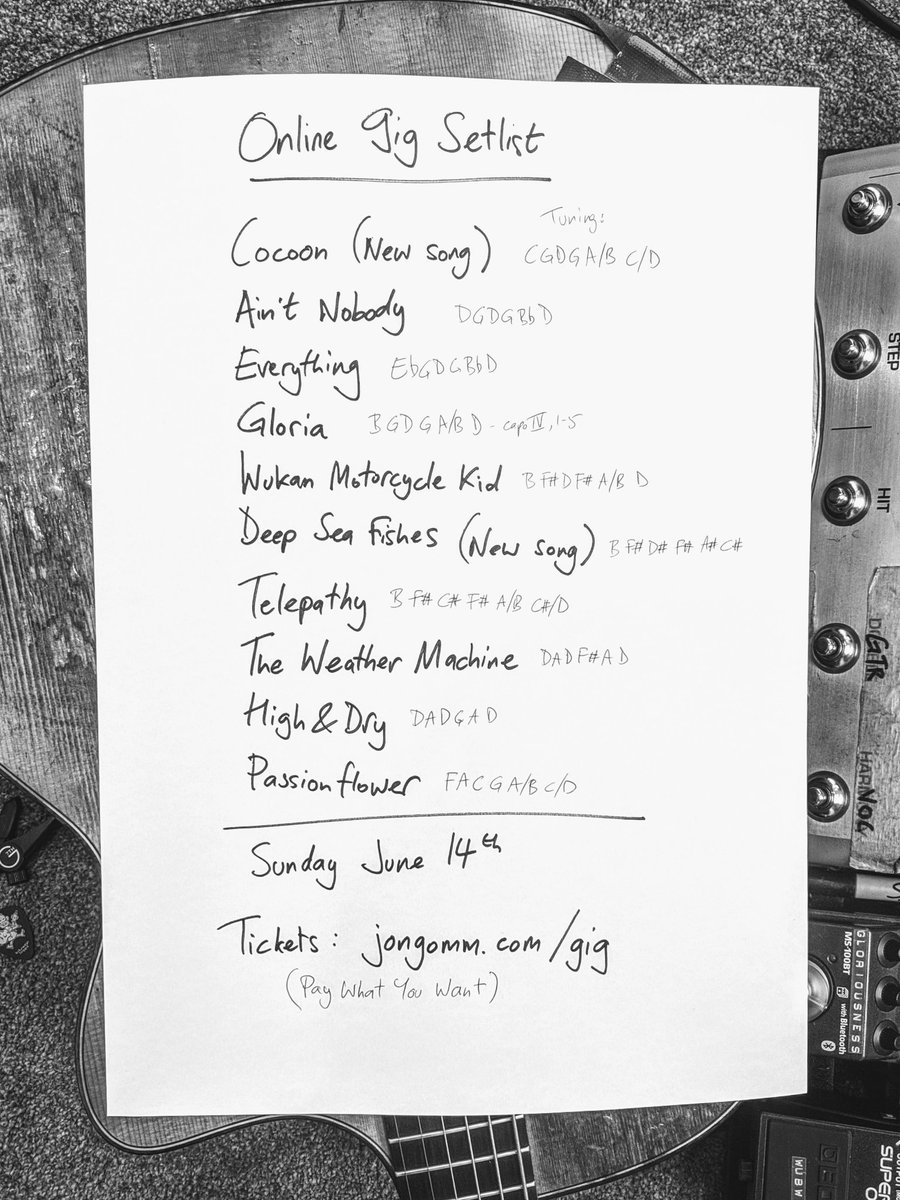 Online Gig Setlist
Tuning:
Cocoon (New song) CGDGA/B C/D
Ain't Nobody DGDGBbD
Everything EbGDGBbD
Gloria BGDG A/B D - capo IV, 1-5
Wukan Motorcycle Kid B F# D F# A/B D
Deep Sea Fishes (New song) B F# D# F# A# C#
Telepathy B F# C# F# A/B C#/D
The Weather Machine DADF#AD
High & Dry DADGAD
Passionflower FACG A/B C/D
Sunday June 14th
Tickets: jongomm.com/gig
(Pay What You Want)
STEP
HIT
GTR
NOG
MS-100BT
with Bluetooth
GLORIOUSNESS
WUBW
SUPER